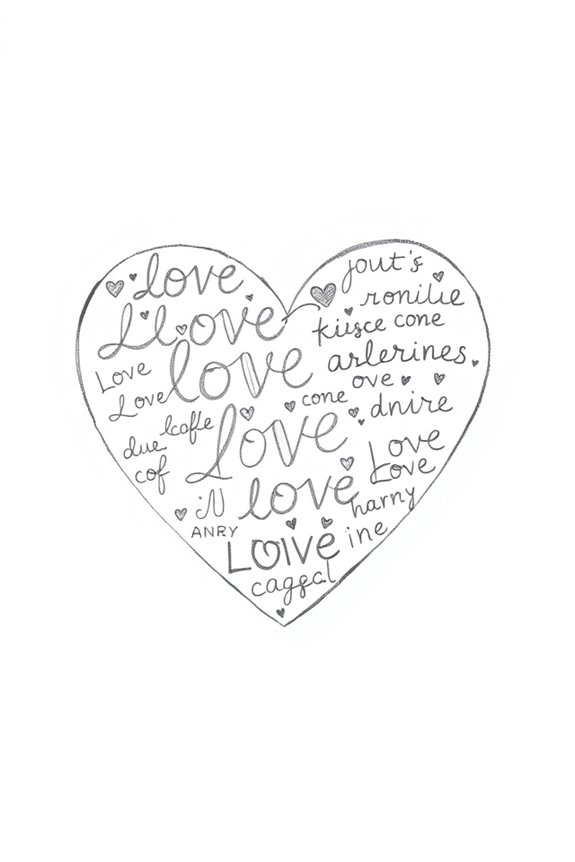 love
jout's
Lloove
ronilie
kiisce cone
Love love
arlerines
Love
ove
cone
dnire
kaffe
love
due
cof
Love
Love
iN
love
harny
ANRY
LOIVE
ine
caggal